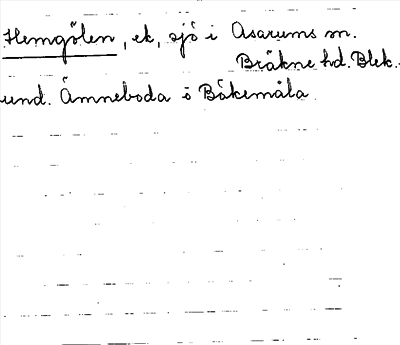 Hemgölen, ek, sjö i Asarums sn.
Bräkne hd. Blek.
und. Ämneboda o Bökemåla